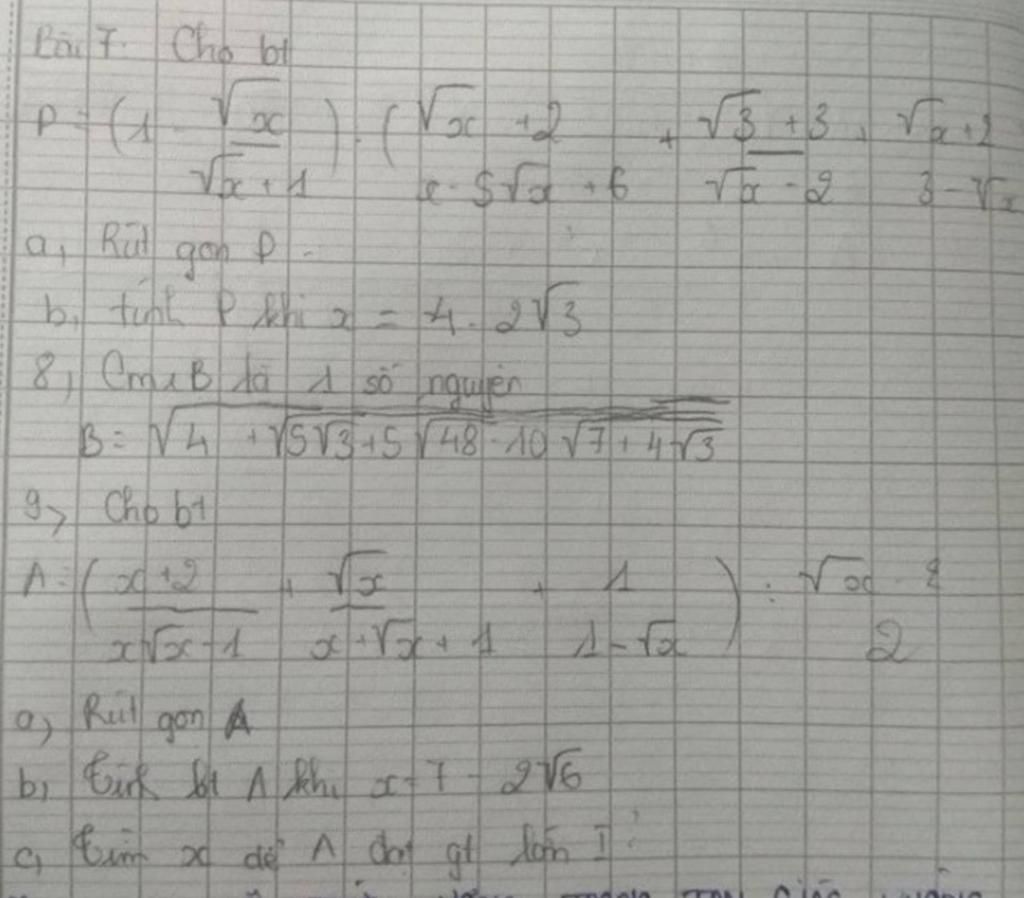 Bài 7. Cho bt
P = (1 - √x / √x + 1) : (√x + 2 / x - 5√x + 6 + √3 + 3 / √x - 2 + √x + 2 / 3 - √x
a, Rút gọn P.
b, tính P khi x = 4 - 2√3
8, Cm B là 1 số nguyên
B = √4 + √5√3 + 5√48 - 10√7 + 4√3
9, Cho bt
A = (x + 2 / x√x - 1 + √x / x + √x + 1 + 1 / 1 - √x) : √x - 1 / 2
a, Rút gọn A
b, tính bt A khi x = 7 - 2√6
c, tìm x để A đạt gt lớn I